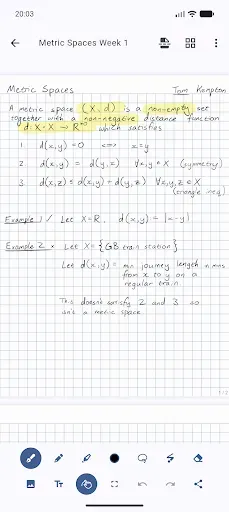 20:03
Metric Spaces Week 1
Metric Spaces Tom Kempton
A metric space (X, d) is a non-empty set
together with a non-negative distance function
d: X × X → R≥0 which satisfies
1. d(x,y) = 0 ⟺ x=y
2. d(x,y) = d(y,x) ∀x,y ∈ X (symmetry)
3. d(x,z) ≤ d(x,y) + d(y,z) ∀x,y,z ∈ X
(triangle ineq)
Example 1 / Let X=R, d(x,y) = |x-y|
Example 2 Let X = { GB train station }
Let d(x,y) = min journey length in mins
from x to y on a
regular train
This doesn't satisfy 2 and 3 so
isn't a metric space
1/2
Tт